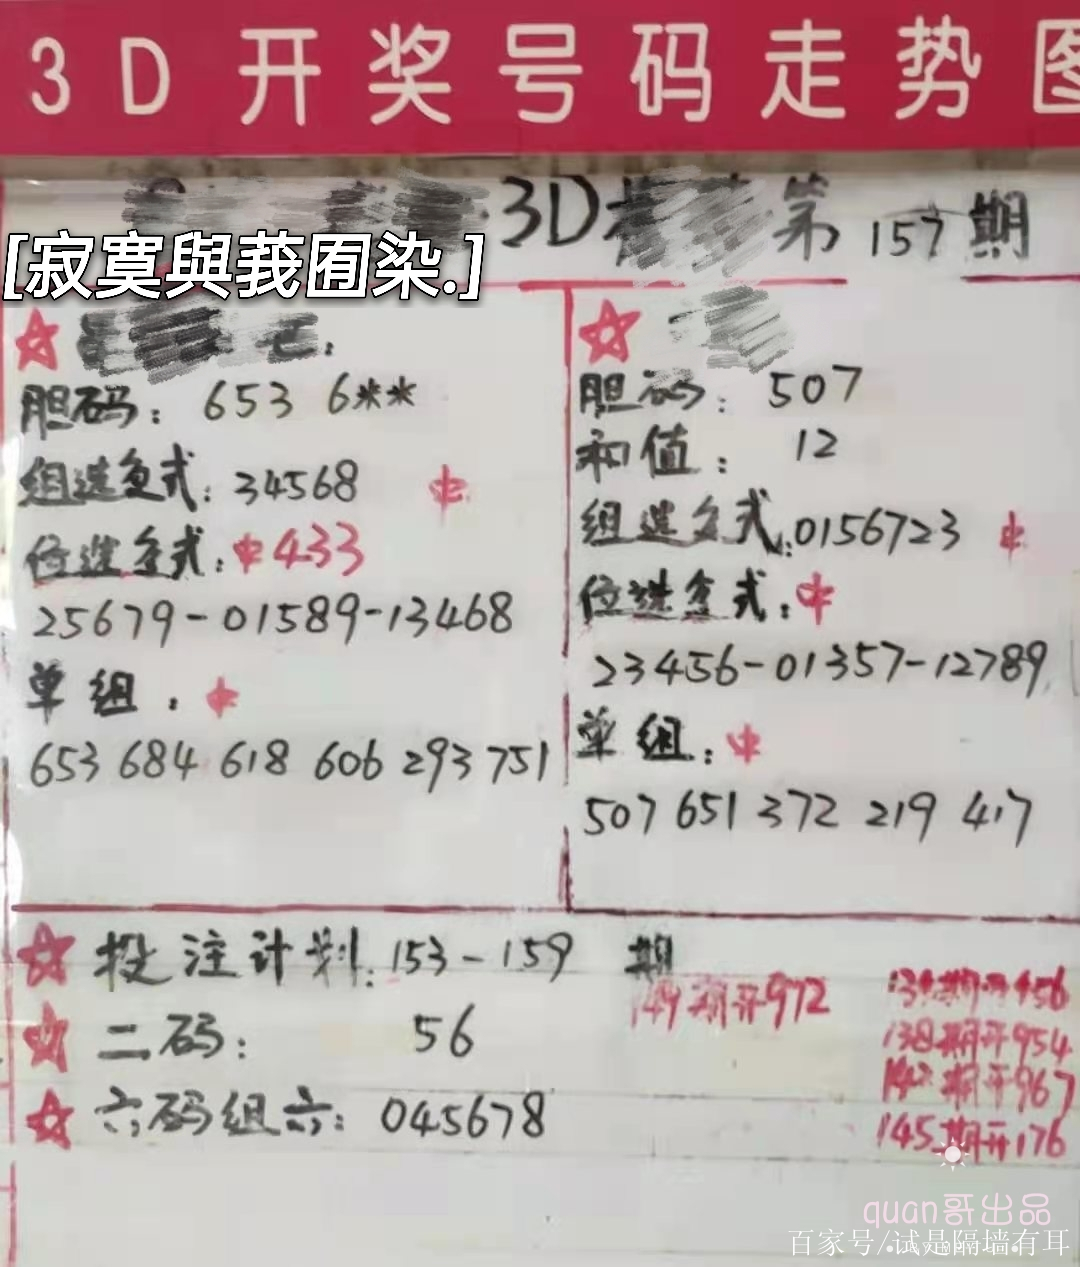 3D开奖号码走势图
3D
第157期
[寂寞與莪囿染.]
胆码：653 6**
组选复式：34568 中
位选复式：中433
25679-01589-13468
单组：中
653 684 618 606 293 751
胆码：507
和值：12
组选复式：0156723 中
位选复式：中
23456-01357-12789
单组：中
507 651 372 219 417
投注计划：153-159 期
二码：56
六码组六：045678
149期开972
134期开456
138期开954
142期开967
145期开176
quan哥出品
百家号/试是隔墙有耳